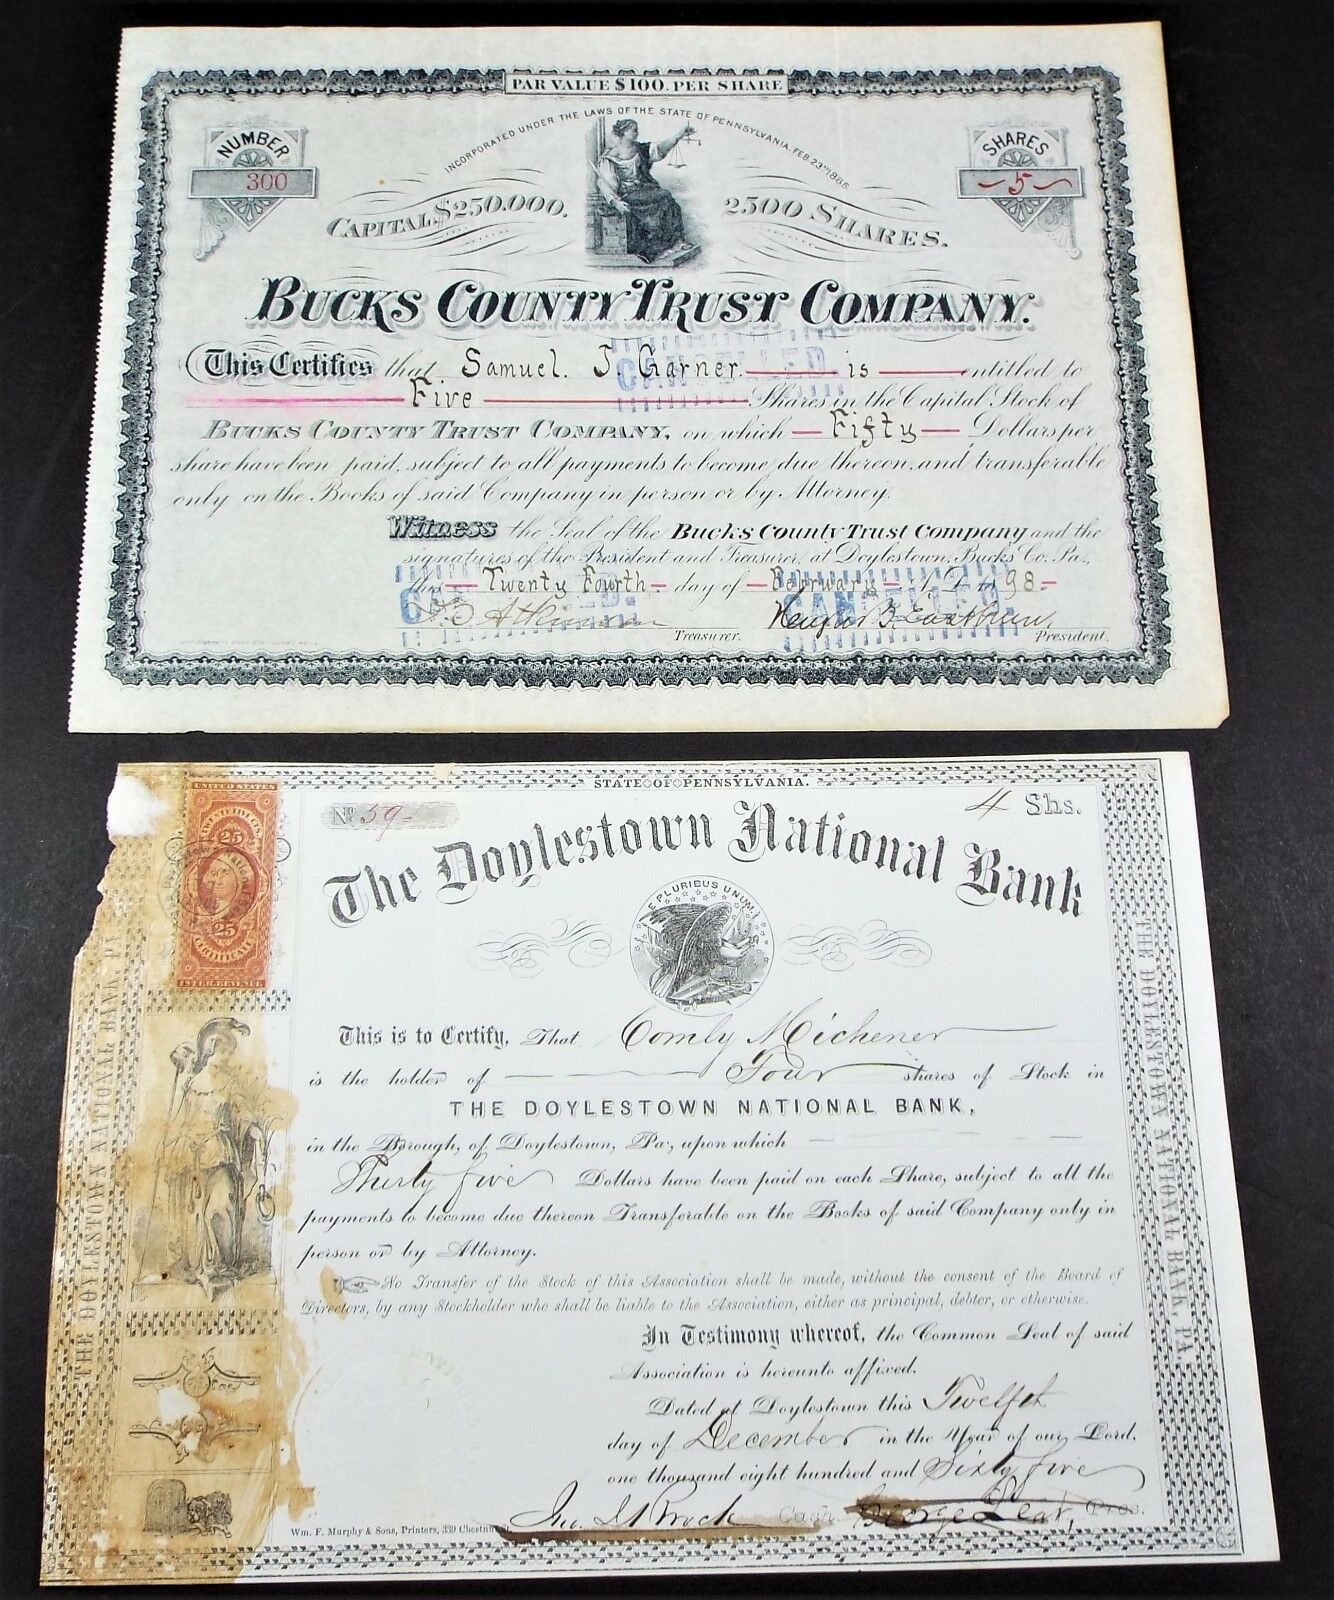 PAR VALUE $100. PER SHARE
INCORPORATED UNDER THE LAWS OF THE STATE OF PENNSYLVANIA. FEB. 23RD 1886.
NUMBER
300
SHARES
5
CAPITAL $250.000.
2500 SHARES.
BUCKS COUNTY TRUST COMPANY.
This Certifies that Samuel. J. Garner. is entitled to
Five Shares in the Capital Stock of
BUCKS COUNTY TRUST COMPANY, on which Fifty Dollars per
share have been paid, subject to all payments to become due thereon, and transferable
only on the Books of said Company in person or by Attorney.
CANCELLED.
Witness the Seal of the Bucks County Trust Company and the
signatures of the President and Treasurer, at Doylestown, Bucks Co. Pa.,
this Twenty Fourth day of February 98
CANCELLED.
CANCELLED.
Atkinson
Treasurer.
Hugh B. Eastburn,
President.
STATE OF PENNSYLVANIA.
UNITED STATES
25
25
CERTIFICATE
INTER. REVENUE
No 59
4 Shs.
The Doylestown National Bank
E PLURIBUS UNUM
This is to Certify, That Comly Michener
is the holder of Four shares of Stock in
THE DOYLESTOWN NATIONAL BANK,
in the Borough, of Doylestown, Pa., upon which
Thirty five Dollars have been paid on each Share, subject to all the
payments to become due thereon Transferable on the Books of said Company only in
person or by Attorney.
No Transfer of the Stock of this Association shall be made, without the consent of the Board of
Directors, by any Stockholder who shall be liable to the Association, either as principal, debtor, or otherwise.
In Testimony whereof, the Common Seal of said
Association is hereunto affixed.
Dated at Doylestown this Twelfth
day of December in the Year of our Lord,
one thousand eight hundred and Sixty five
Jno. J. Brock Cash. George Lear, Pres.
Wm. F. Murphy & Sons, Printers, 339 Chestnut St.
THE DOYLESTOWN NATIONAL BANK, PA.
THE DOYLESTOWN NATIONAL BANK, PA.